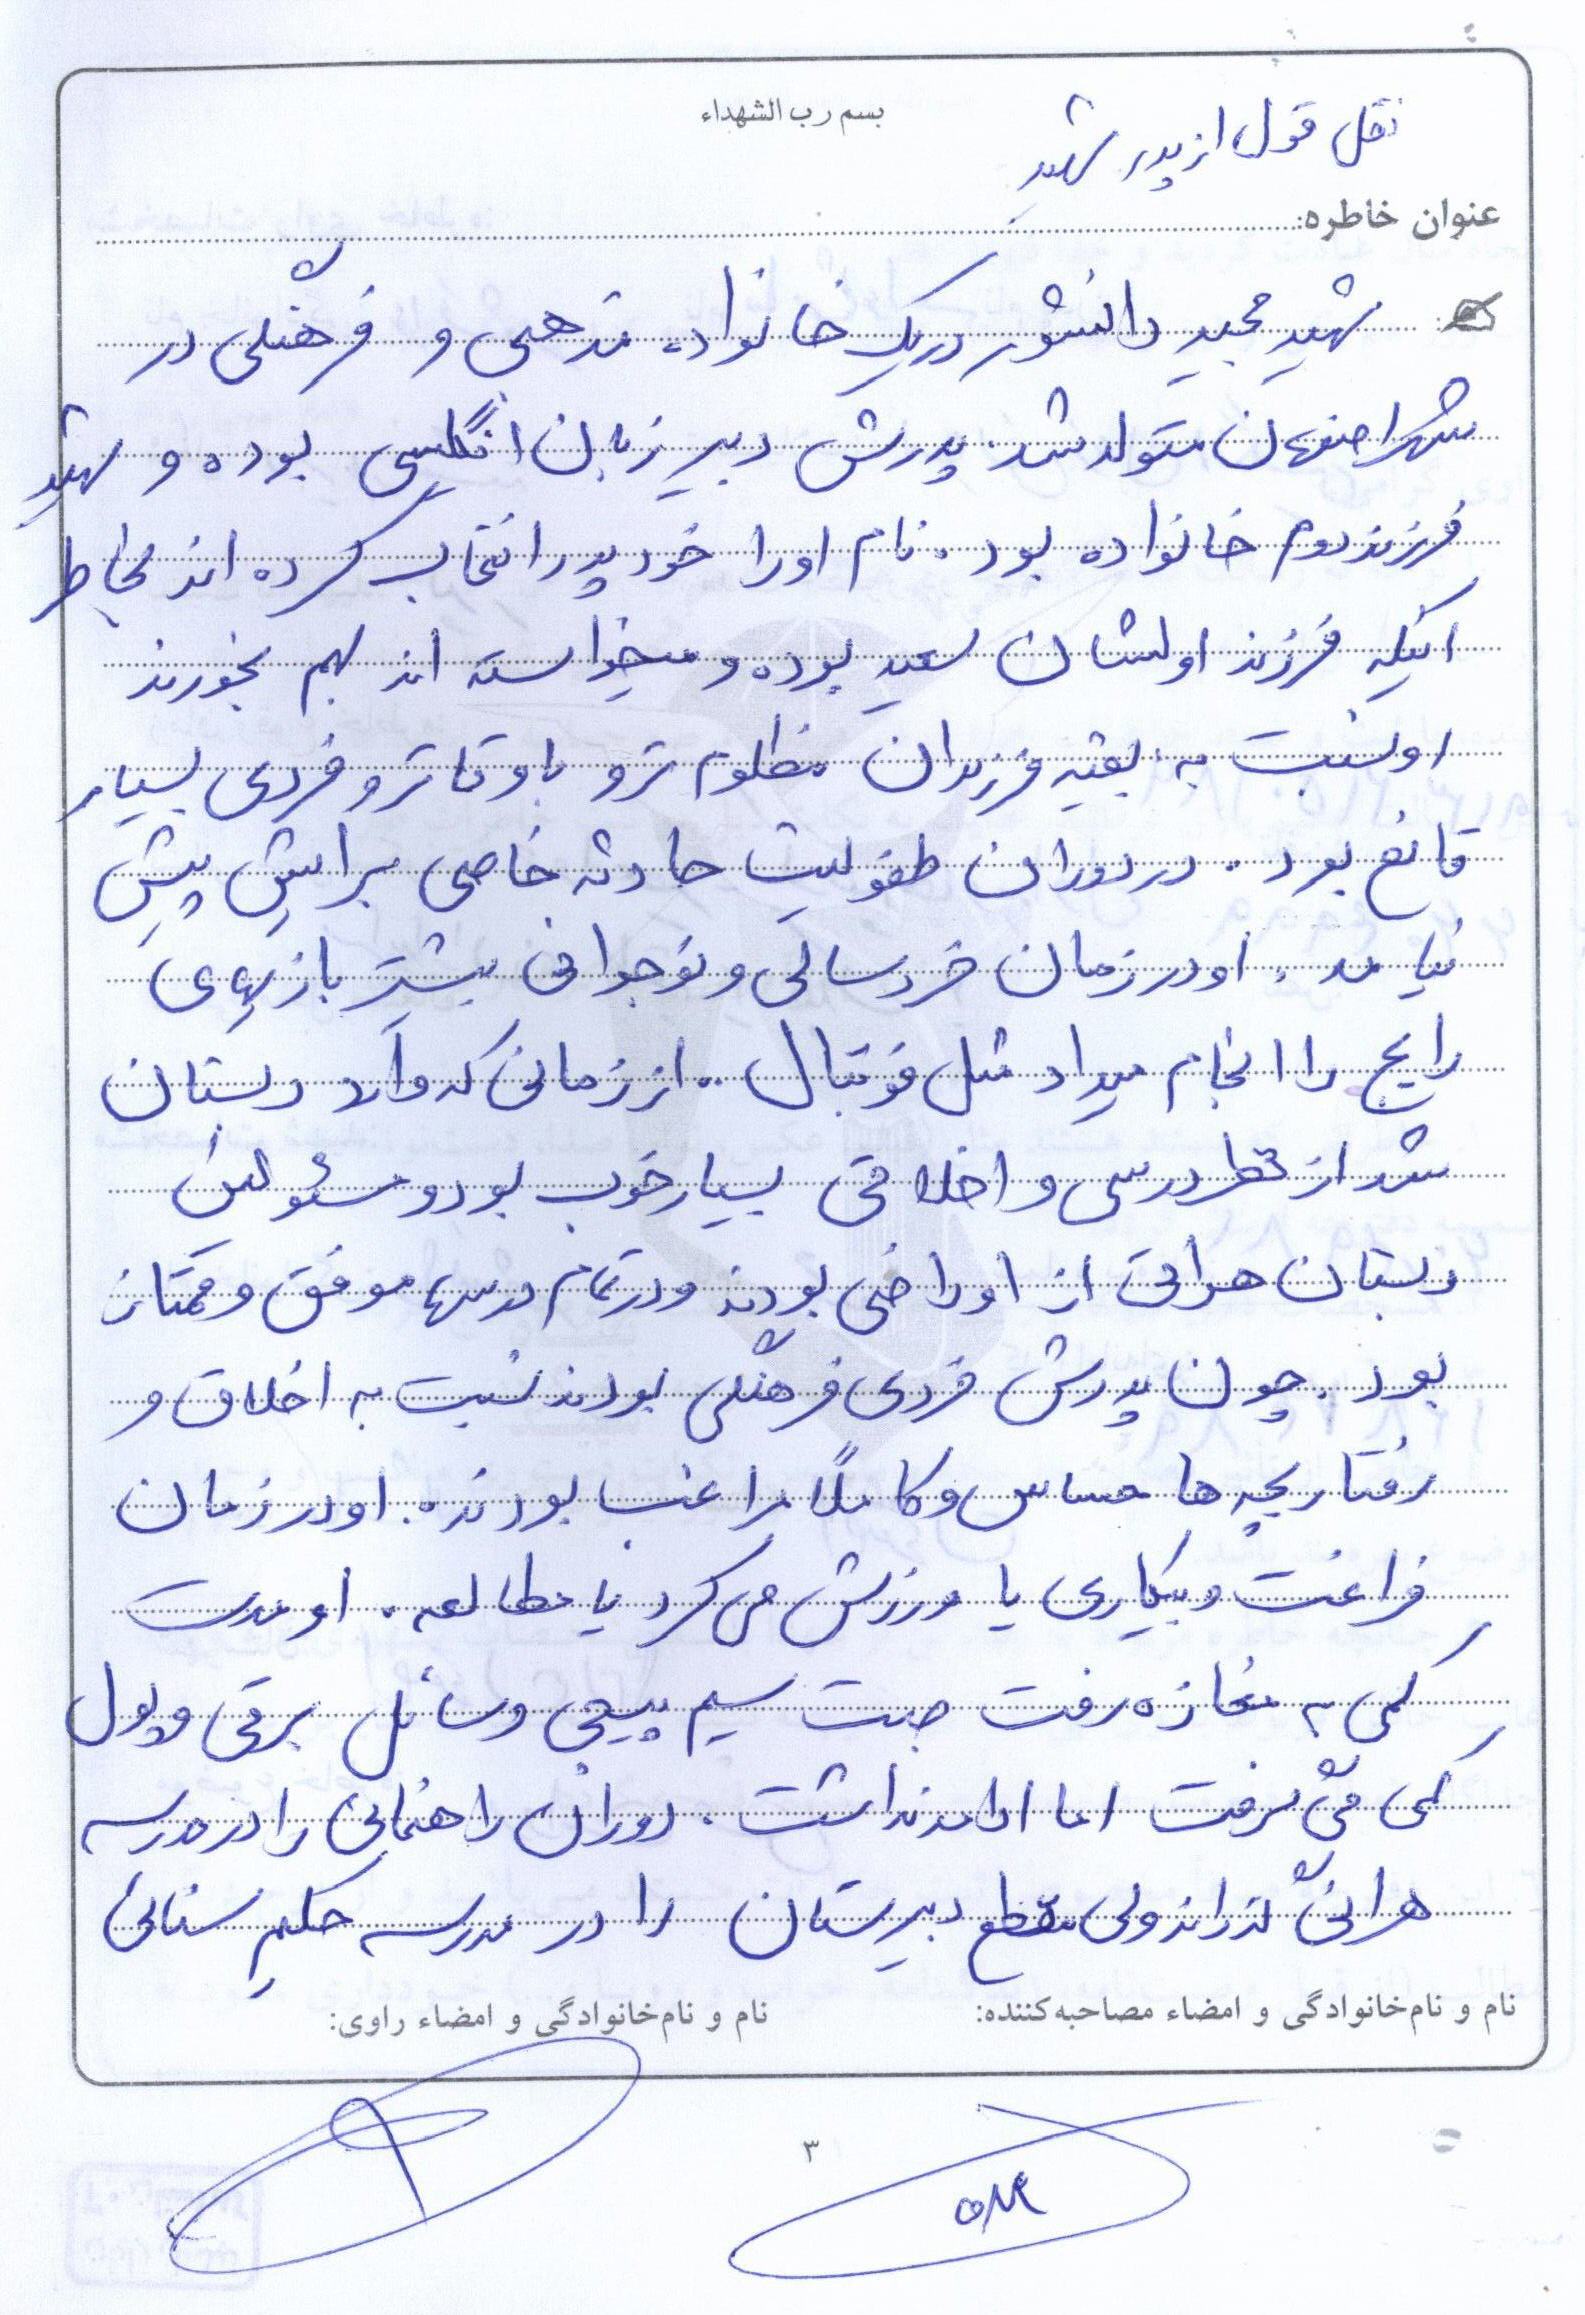 بسم رب الشهداء
نقل قول از پدر شهید
عنوان خاطره:
شهید مجید دانشور در یک خانواده مذهبی و فرهنگی در
شهر اصفهان متولد شد. پدرش دبیر زبان انگلیسی بوده و شهید
فرزند دوم خانواده بود. نام او را خود پدر انتخاب کرده اند بخاطر
اینکه فرزند اولشان سعید بوده و میخواسته اند بهم بخورند
او نسبت به بقیه فرزندان مظلوم تر و باوقاتر و فردی بسیار
قانع بود. در دوران طفولیت حادثه خاصی برایش پیش
نیامد. او در زمان خردسالی و نوجوانی بیشتر بازیهای
رایج را انجام میداد مثل فوتبال.. از زمانی که وارد دبستان
شد از نظر درسی و اخلاقی بسیار خوب بود و مسئولین
دبستان هراتی از او راضی بودند و در تمام درسها موفق و ممتاز
بود. چون پدرش فردی فرهنگی بودند نسبت به اخلاق و
رفتار بچه ها حساس و کاملاً مراغب بودند. او در زمان
فراغت و بیکاری یا ورزش می کرد یا مطالعه. او مدت
کمی به مغازه رفت جهت سیم پیچی وسائل برقی و پول
کمی می گرفت اما ادامه نداشت. دوران راهنمایی را در مدرسه
هراتی گذراند ولی مقطع دبیرستان را در مدرسه حکیم سنائی
نام و نام‌خانوادگی و امضاء مصاحبه‌کننده:
نام و نام‌خانوادگی و امضاء راوی:
۳